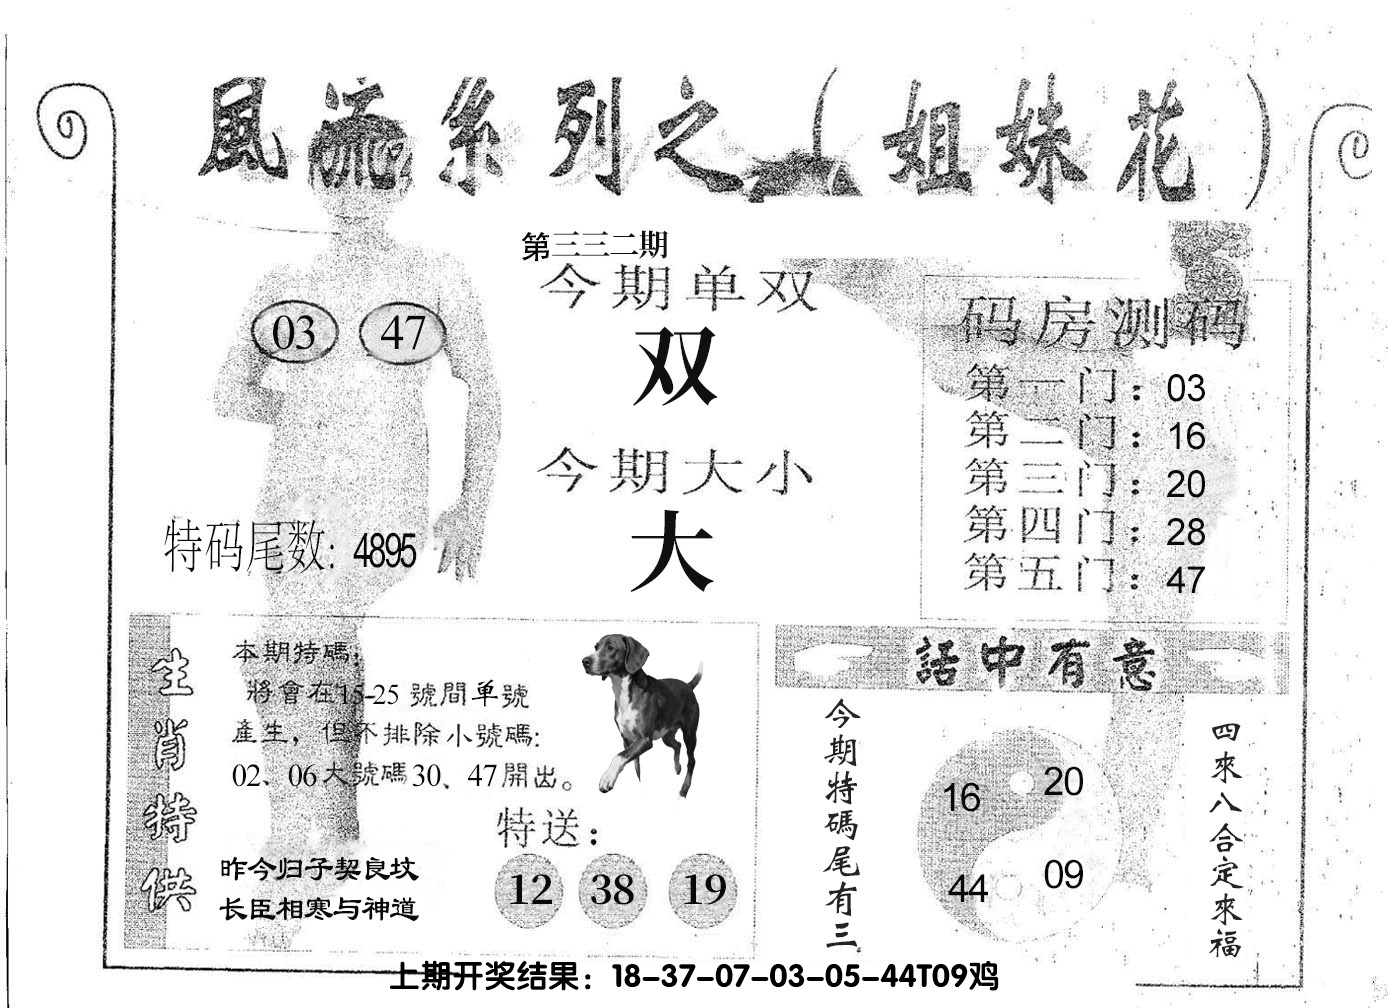 風流系列之(姐妹花)
第三三二期
今期单双
双
今期大小
大
03 47
特码尾数: 4895
码房测码
第一门: 03
第二门: 16
第三门: 20
第四门: 28
第五门: 47
生肖特供
本期特碼,
將會在15-25 號間单號
產生, 但不排除小號碼:
02、06大號碼30、47開出。
特送:
12 38 19
昨今归子契良坟
长臣相寒与神道
話中有意
今期特碼尾有三
16 20
44 09
四來八合定來福
上期开奖结果: 18-37-07-03-05-44T09鸡